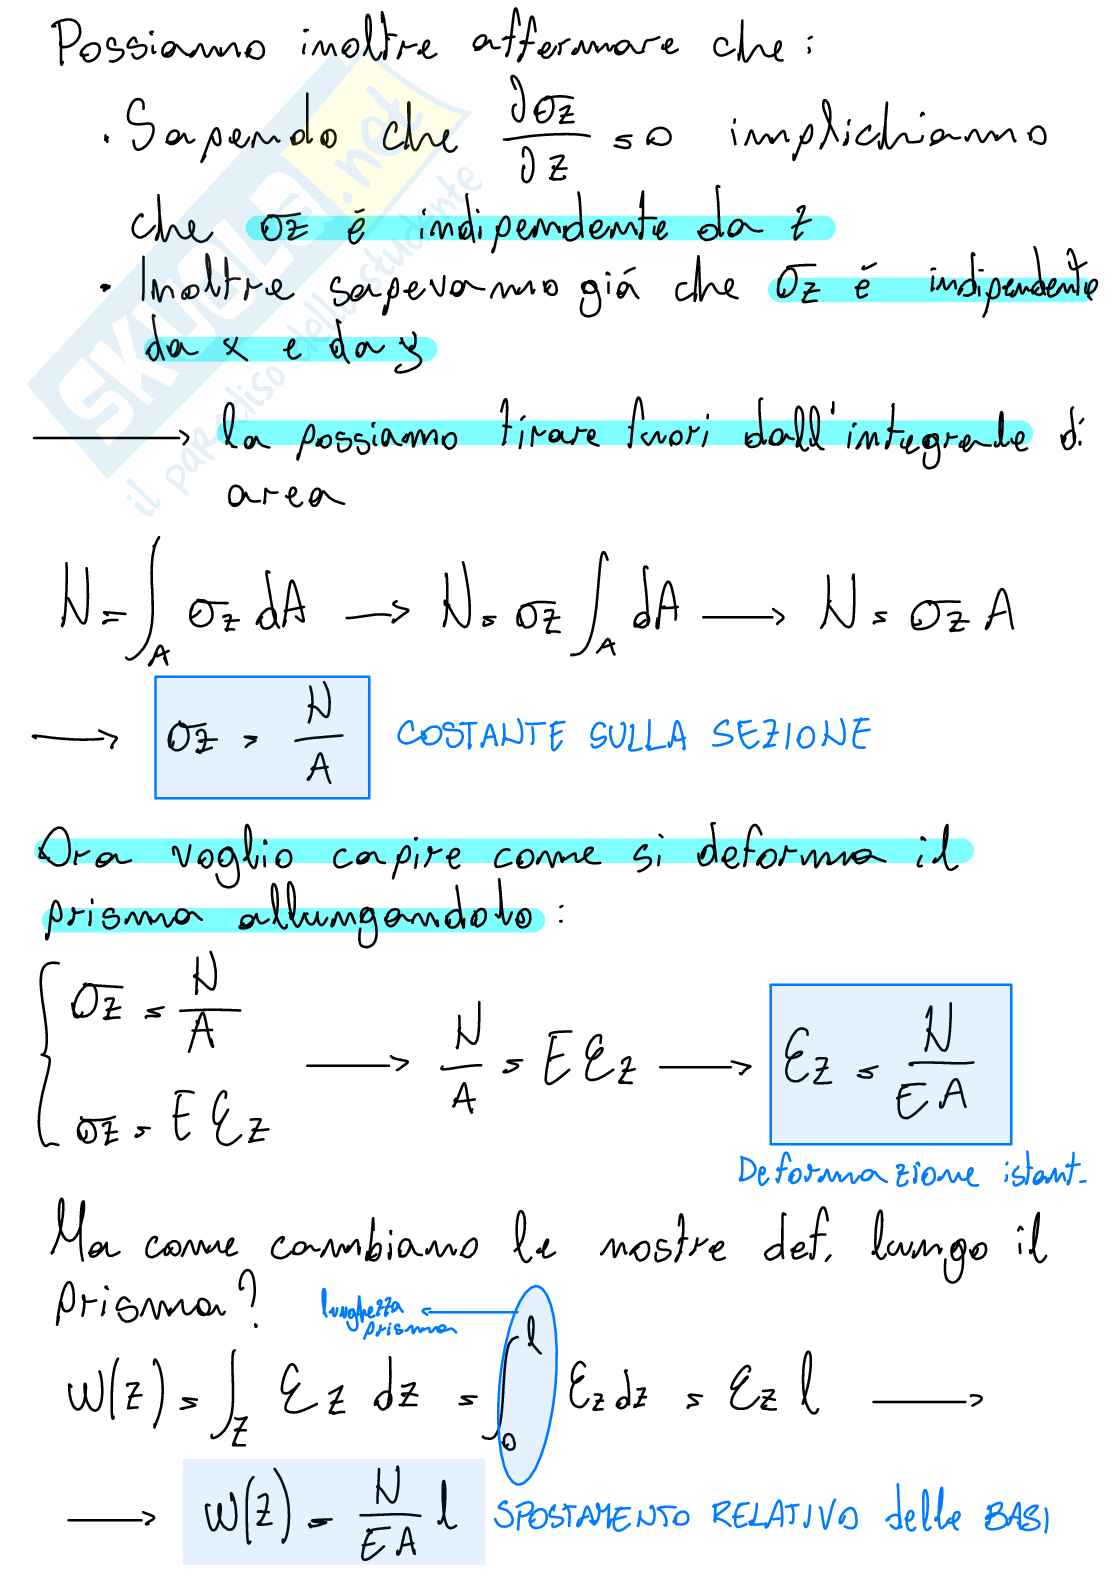 Possiamo inoltre affermare che:
· Sapendo che ∂σz/∂z = 0 implichiamo
che σz é indipendente da z
· Inoltre sapevamo giá che σz é indipendente
da x e da y
→ la possiamo tirare fuori dall'integrale di
area
N = ∫_A σz dA → N = σz ∫_A dA → N = σz A
→ σz = N/A COSTANTE SULLA SEZIONE
Ora voglio capire come si deforma il
prisma allungandolo:
{ σz = N/A
σz = E εz → N/A = E εz → εz = N/EA
Deformazione istant.
Ma come cambiano le nostre def. lungo il
prisma?
lunghezza
prisma
w(z) = ∫_z εz dz = ∫_0^l εz dz = εz l →
→ w(z) = N/EA l SPOSTAMENTO RELATIVO delle BASI
SKUOLA.net
il paradiso dello studente